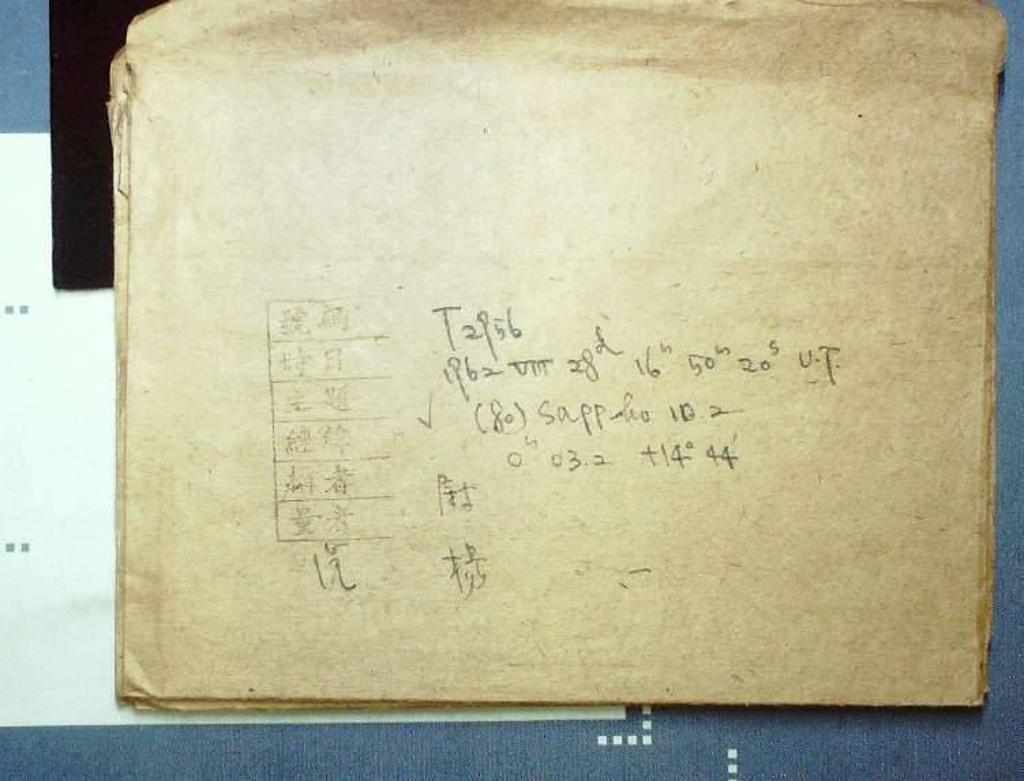 號碼 T2956
時日 1962 VIII 28d 16h 50m 20s U.T.
主題 √ (80) Sappho 10.2
經緯 0h 03.2 +14° 44'
攝者
量者
楊 —